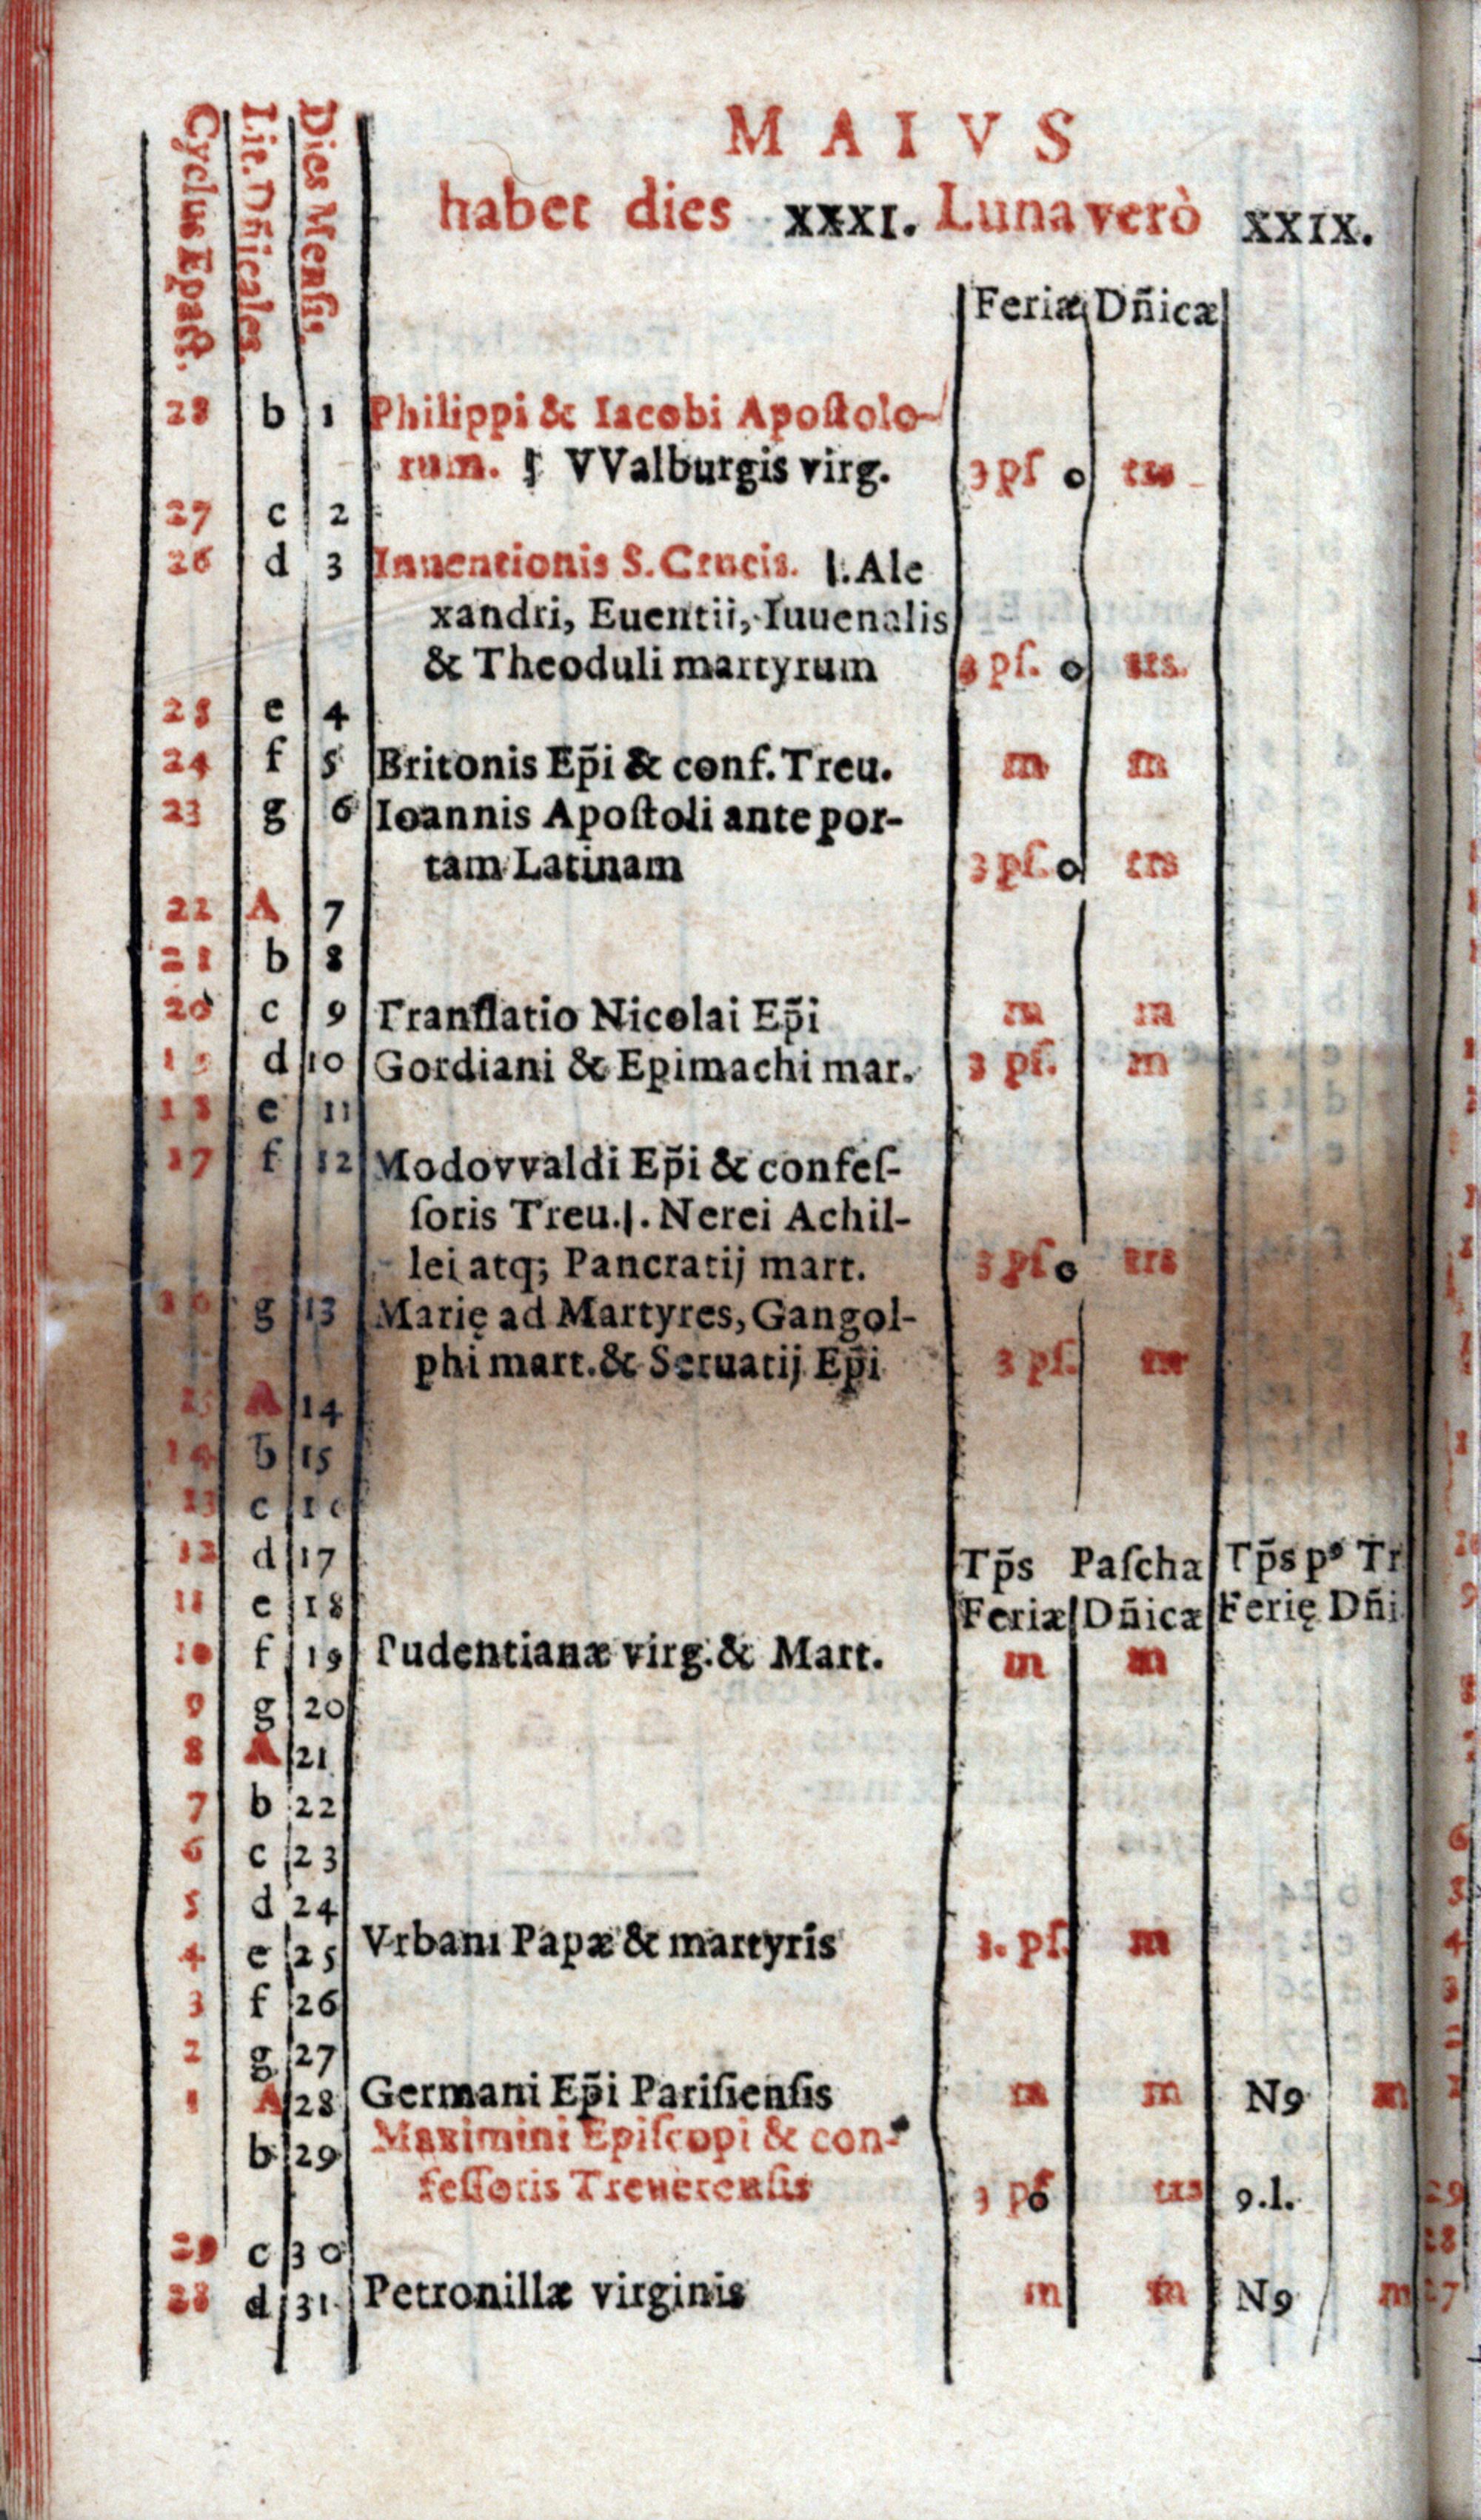 Cyclus Epact.
Lit. Dñicales.
Dies Mensis.
MAIVS
habet dies XXXI. Luna verò XXIX.
Feriæ Dñicæ
28 b 1 Philippi & Iacobi Apoſtolo-
rum. VValburgis virg. 3 pſ o trs
27 c 2
26 d 3 Inuentionis S. Crucis. ſ. Ale
xandri, Euentii, Iuuenalis
& Theoduli martyrum 3 pſ. o trs.
25 e 4
24 f 5 Britonis Ep̃i & conf. Treu. m m
23 g 6 Ioannis Apoſtoli ante por-
tam Latinam 3 pſ. o trs
22 A 7
21 b 8
20 c 9 Tranſlatio Nicolai Ep̃i m m
19 d 10 Gordiani & Epimachi mar. 3 pſ. m
18 e 11
17 f 12 Modovvaldi Ep̃i & confeſ-
ſoris Treu. ſ. Nerei Achil-
lei atq; Pancratij mart. 3 pſ o trs
16 g 13 Marię ad Martyres, Gangol-
phi mart. & Seruatij Ep̃i 3 pſ. m
15 A 14
14 b 15
13 c 16
12 d 17 Tp̃s Paſcha Tp̃s pꝰ Tr
11 e 18 Feriæ Dñicæ Ferię Dñi
10 f 19 Pudentianæ virg. & Mart. m m
9 g 20
8 A 21
7 b 22
6 c 23
5 d 24
4 e 25 Vrbani Papæ & martyris 3. pſ. m
3 f 26
2 g 27
1 A 28 Germani Ep̃i Pariſienſis m m N9 m
b 29 Maximini Epiſcopi & con-
feſſoris Treuerenſis 3 pſ o trs 9.l.
29 c 30
28 d 31 Petronillæ virginis m m N9 m